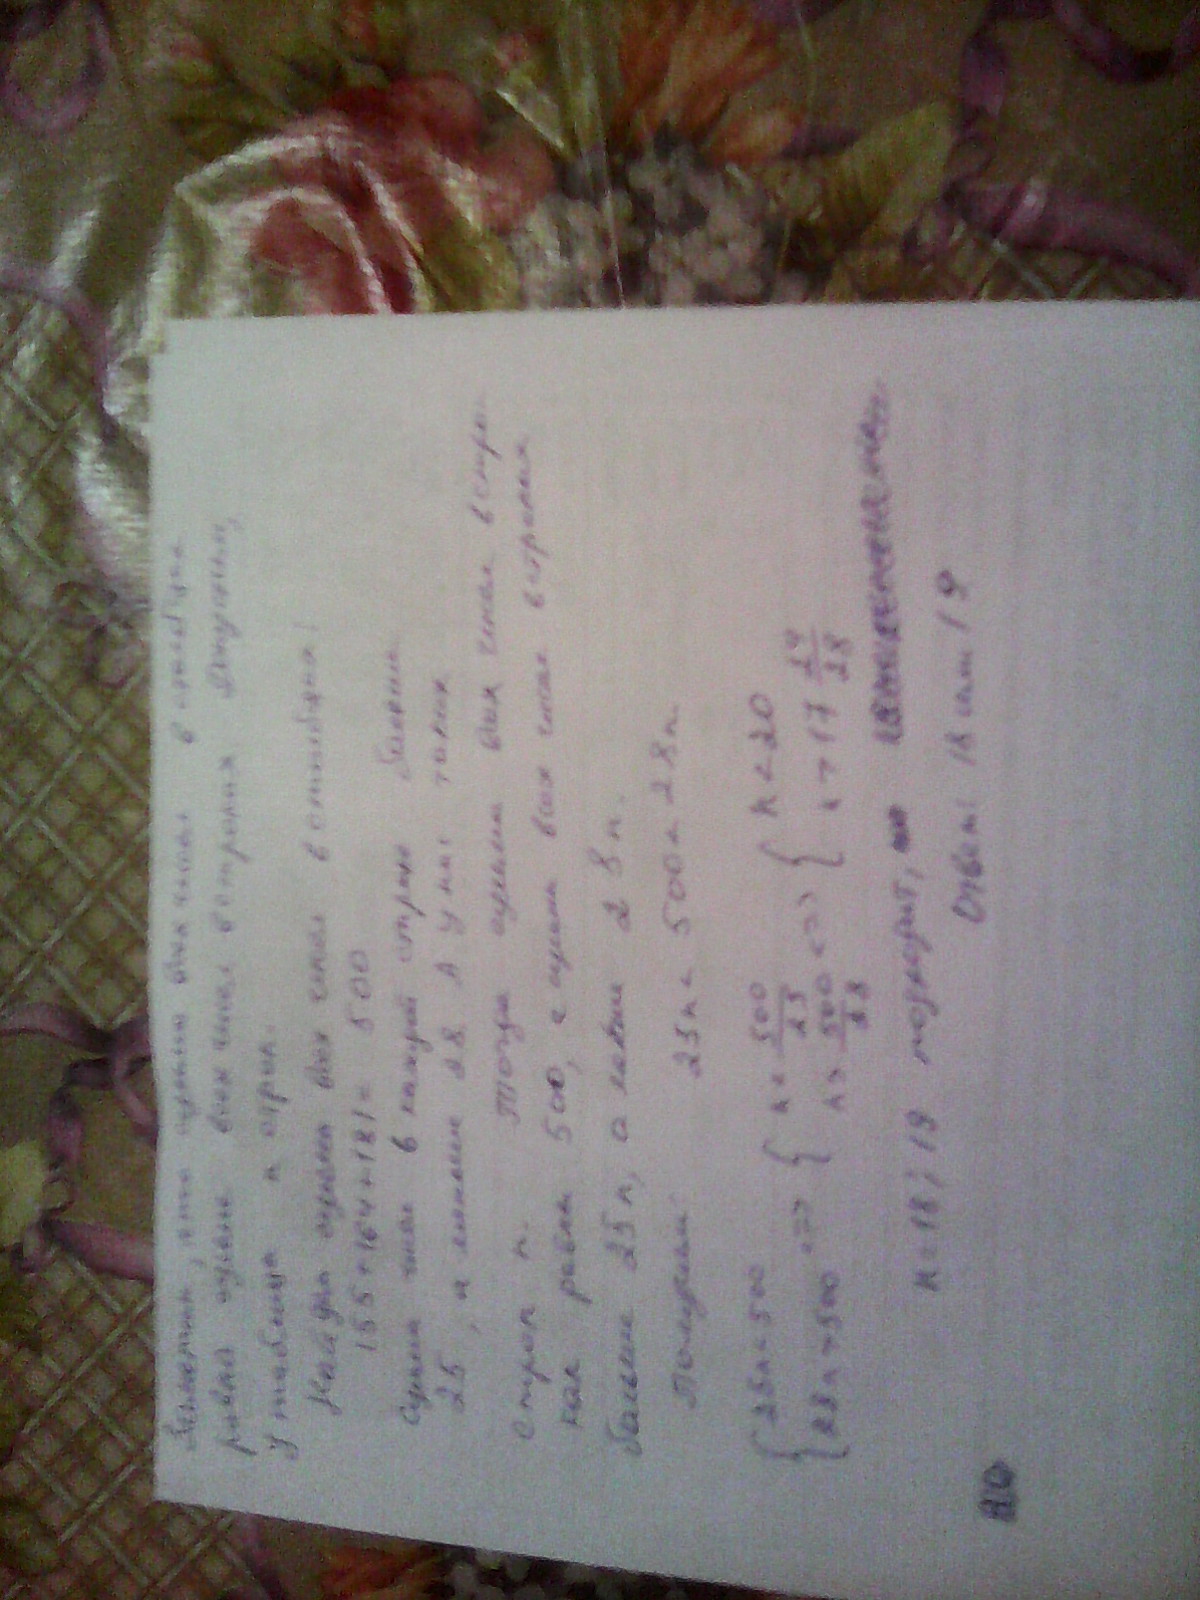 Заметим, что сумма всех чисел в столбцах
равна сумме всех чисел в строках. Допустим,
у таблицы n строк.
Найдём сумму всех чисел в столбцах!
155+164+181= 500
Сумма чисел в каждой строке больше
25, а меньше 28. А у нас только
строк n. Тогда сумма всех чисел в стро-
ках равна 500, а сумма всех чисел в строках
больше 25n, а менее 28n.
Получаем: 25n < 500 < 28n.
{25n<500 {28n>500 <=> {n< 500/25 n> 500/28 <=> {n<20 n>17 24/28
n=18; 19 подходит,
Ответ: 18 или 19